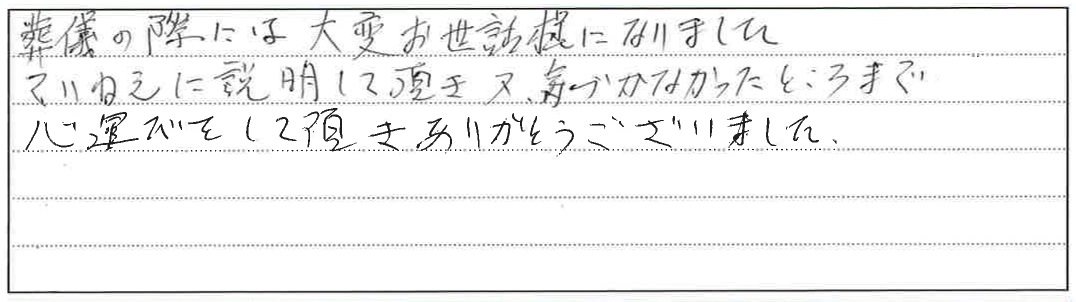 葬儀の際には大変お世話様になりました
ていねえに説明して頂き又、気づかなかったところまで
心運びをして頂きありがとうございました。